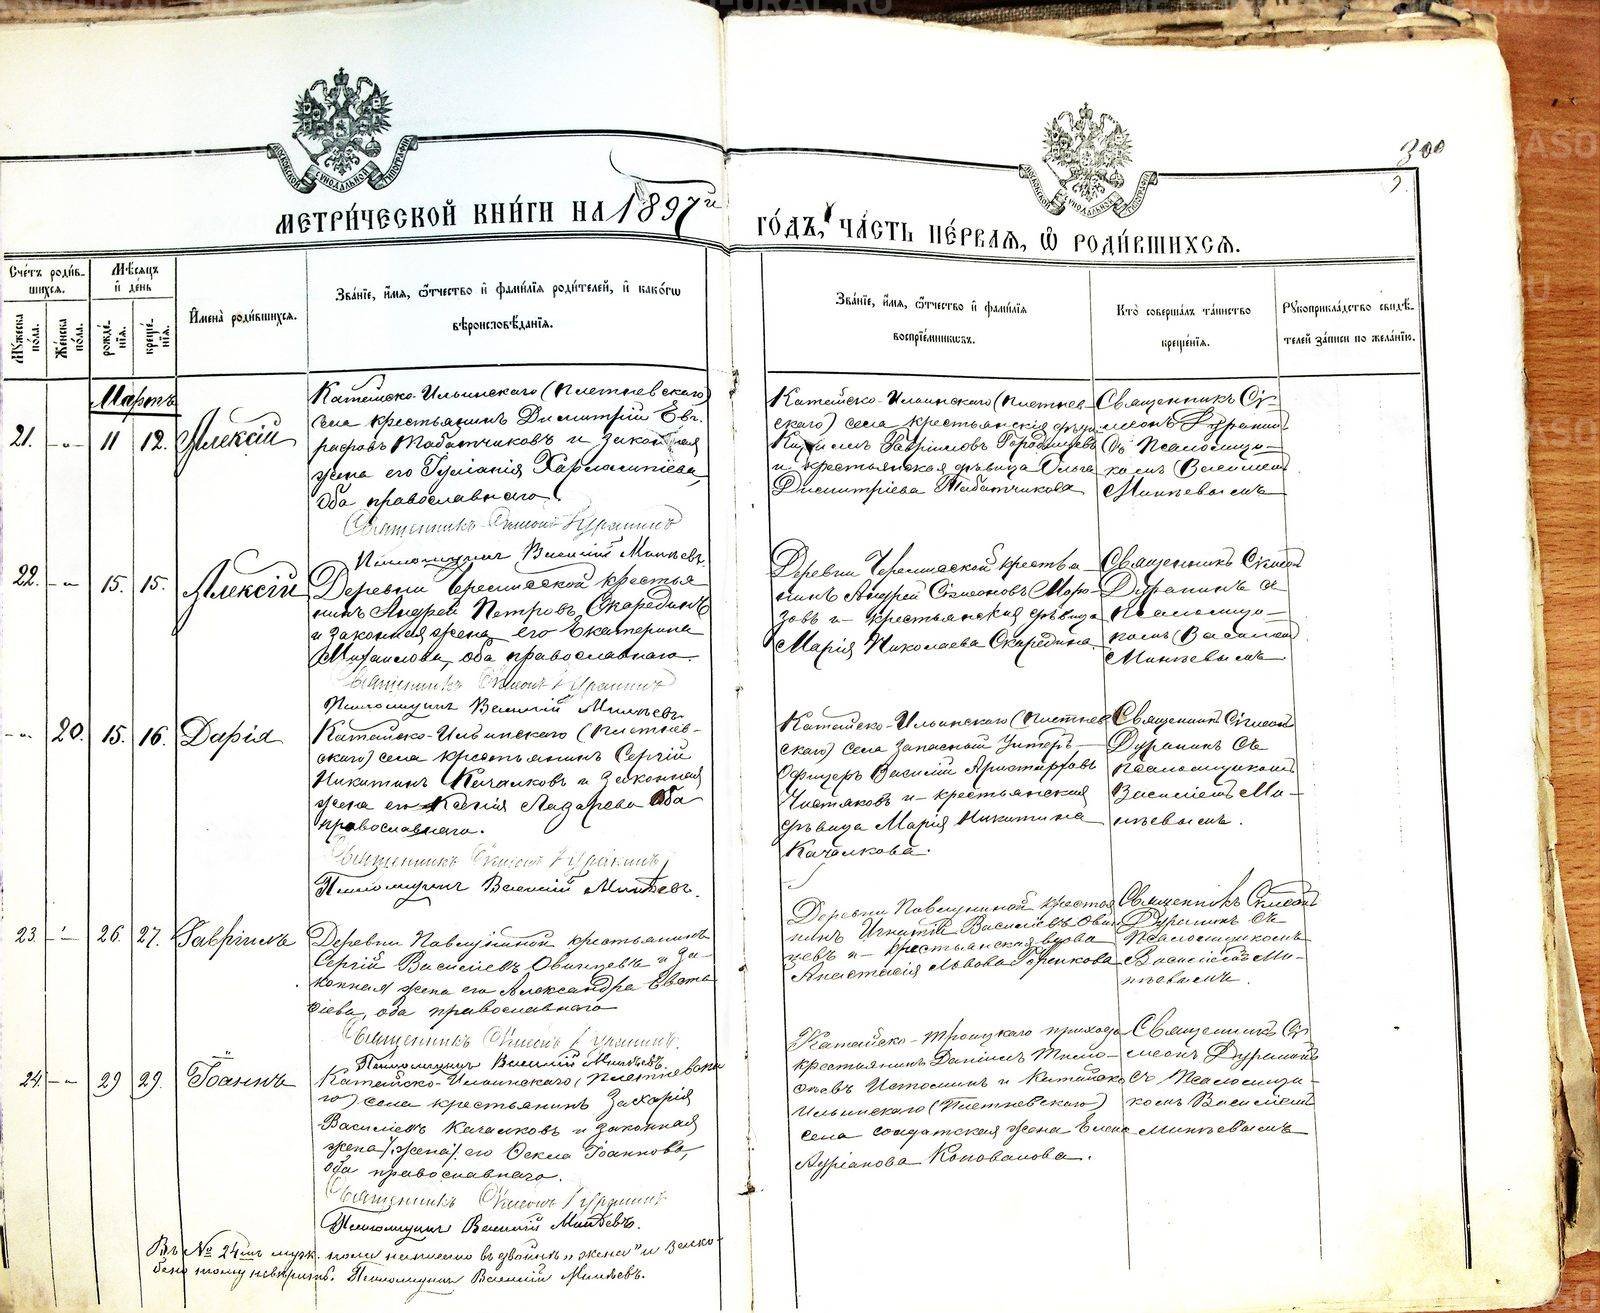 300
МЕТРИ́ЧЕСКОЙ КНИ́ГИ НА 1897й
ГО́ДЪ, ЧА́СТЬ ПЕ́РВАЯ, Ѡ РОДИ́ВШИХСЯ.
Сче́тъ роди́в-
шихся.
Мѣ́сяцъ
и̂ де́нь
Мꙋ́жеска по́ла.
Же́нска по́ла.
рожде́нїѧ.
креще́нїѧ.
И҆мена̀ роди́вшихся.
Зва́нїе, и҆́мѧ, ѻ҆́тчество и҆ фами́лїѧ роди́телей, и҆ како́гѡ
вѣроисповѣ́данїѧ.
Зва́нїе, и҆́мѧ, ѻ҆́тчество и҆ фами́лїѧ
воспрїе́мниковъ.
Кто̀ соверша́лъ та́инство
креще́нїѧ.
Рꙋкоприкла́дство свидѣ́-
телей за́писи по жела́нїю.
Мартъ
21. -"- 11 12. Алексій
Катайско-Ильинскаго (Плетневскаго)
села крестьянинъ Димитрій Евг-
рафовъ Табатчиковъ и законная
жена его Гуліанія Харлампіева,
оба православнаго.
Священникъ Симеонъ
Псаломщикъ Василій Минѣевъ.
Катайско-Ильинскаго (Плетнев-
скаго) села крестьянскія
Гавриловъ Городищевъ
и крестьянская дѣвица Ольга
Димитріева Табатчикова
Священникъ Сі-
меонъ
съ Псаломщи-
комъ Василіемъ
Минѣевымъ
22. -"- 15. 15. Алексій
Деревни Черемисской крестья-
нинъ Андрей Петровъ Скарединъ
и законная жена его Екатерина
Михаилова, оба православнаго.
Священникъ Симеонъ
Псаломщикъ Василій Минѣевъ
Деревни Черемисской крестья-
нинъ Андрей Симеоновъ Моро-
зовъ и крестьянская дѣвица
Марія Николаева Скаредина.
Священникъ Симеонъ
съ
Псаломщи-
комъ Василіемъ
Минѣевымъ
-"- 20. 15. 16. Дарія
Катайско-Ильинскаго (Плетнев-
скаго) села крестьянинъ Сергій
Никитинъ Качалковъ и законная
жена его Ксенія Лазарева оба
православнаго.
Священникъ Симеонъ
Псаломщикъ Василій Минѣевъ.
Катайско-Ильинскаго (Плетнев-
скаго) села запасный Унтеръ-
Офицеръ Василій Аристарховъ
Чистяковъ и крестьянская
дѣвица Марія Никитина
Качалкова.
Священникъ Симеонъ
съ
псаломщикомъ
Василіемъ Ми-
нѣевымъ.
23. -"- 26. 27. Гавріилъ
Деревни Павлуниной крестьянинъ
Сергій Василіевъ Овчицевъ и за-
конная жена его Александра Евста-
fіева, оба православнаго
Священникъ Симеонъ
Псаломщикъ Василій Минѣевъ.
Деревни Павлуниной крестья-
нинъ Игнатій Василіевъ
и крестьянская вдова
Анастасія Львова
Священникъ Симеонъ
съ
псаломщикомъ
Василіемъ Ми-
нѣевымъ.
24. -"- 29 29. Іоаннъ
Катайско-Ильинскаго (Плетневска-
го) села крестьянинъ Захарія
Василіевъ Качалковъ и законная
жена /жена/ его Ѳекла Іоаннова,
оба православнаго.
Священникъ Симеонъ
Псаломщикъ Василій Минѣевъ.
Катайско-Троицкаго прихода
крестьянинъ Даніилъ Тимо-
Истоминъ и Катайско
Ильинскаго (Плетневскаго)
села солдатская жена Елена
Адріанова Коновалова.
Священникъ Сі-
меонъ
съ Псаломщи-
комъ Василіемъ
Минѣевымъ
Въ № 24мъ муж. пола написано въ двойнѣ "жена" и
тому невѣрить. Псаломщикъ Василій Минѣевъ.